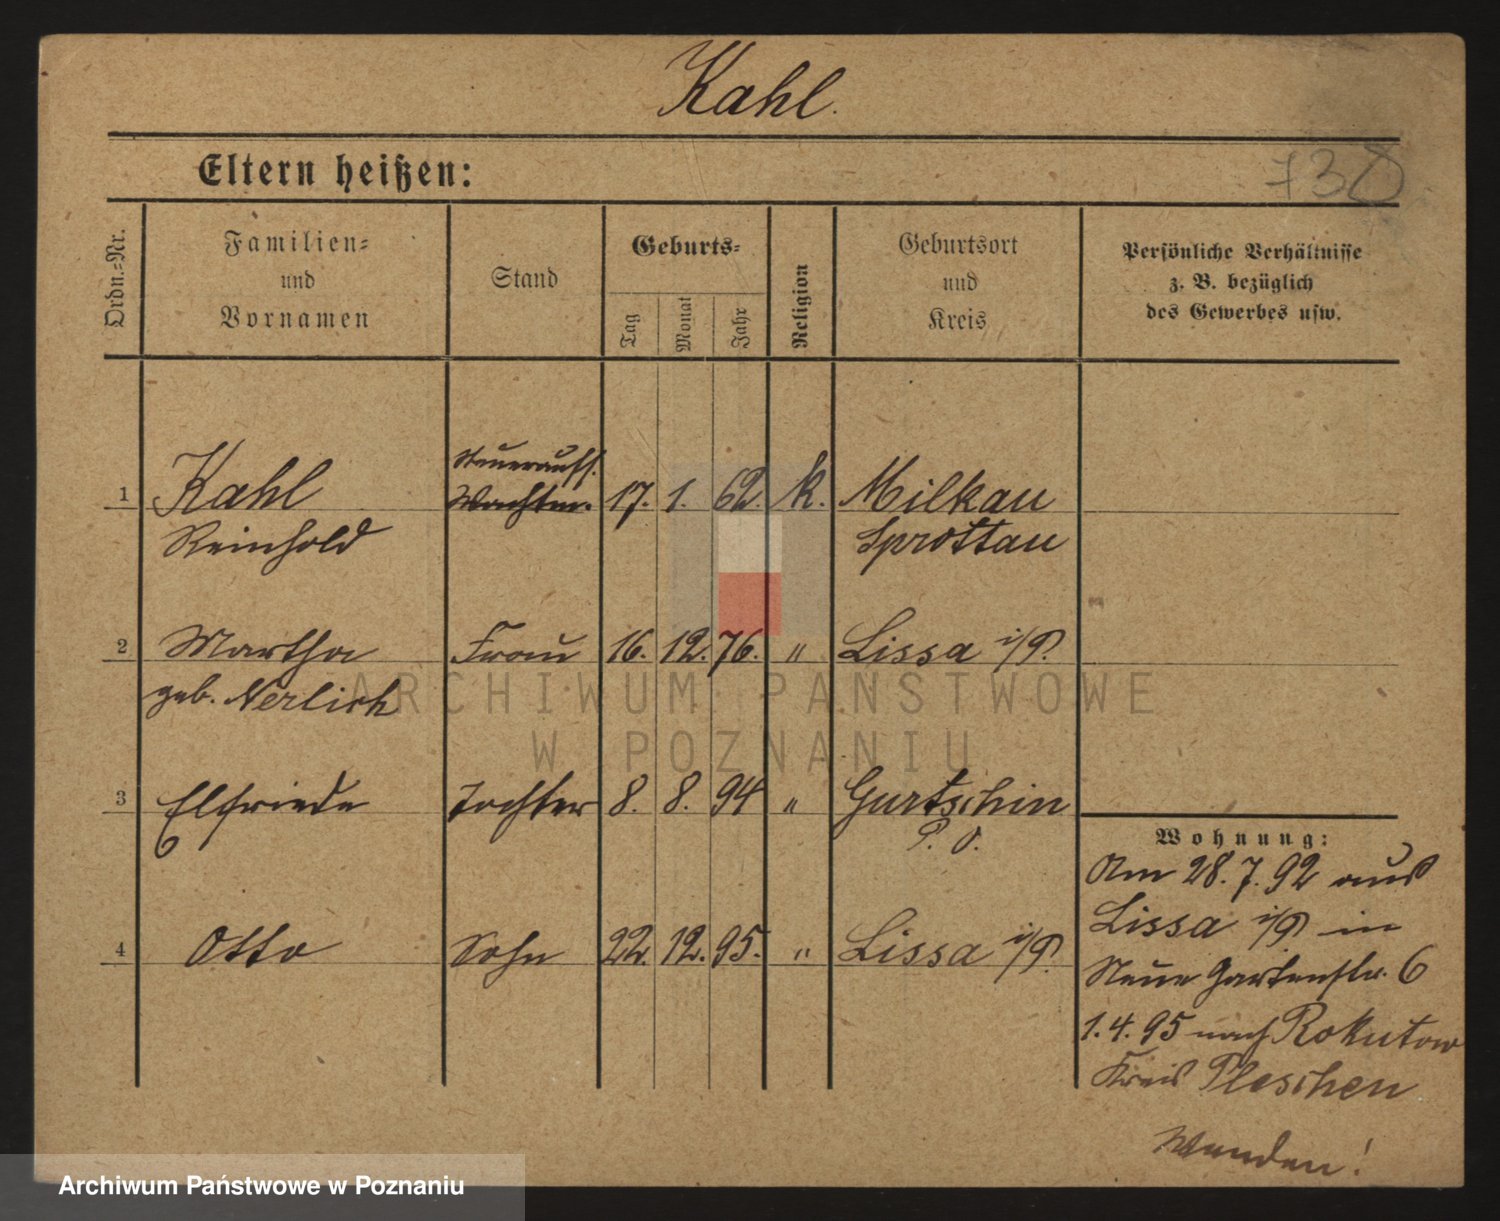 Kahl.
Eltern heißen:
738
Ordn.=Nr.
Familien=
und
Vornamen
Stand
Geburts=
Tag
Monat
Jahr
Religion
Geburtsort
und
Kreis
Persönliche Verhältnisse
z. B. bezüglich
des Gewerbes usw.
1 Kahl Steueraufs. Wachtm. 17. 1. 62. k. Milkau
Reinhold Sprottau
2 Martha Frau 16. 12. 76. " Lissa i/P.
geb. Nerlich
3 Elfriede Tochter 8. 8. 94 " Gurtschin
P. O.
4 Otto Sohn 22. 12. 95. " Lissa i/P.
Wohnung:
Am 28. 7. 92 aus
Lissa i/P in
Neue Gartenstr. 6
1. 4. 95 nach Rokutow
Kreis Pleschen
Wenden!
ARCHIWUM PAŃSTWOWE
W POZNANIU
Archiwum Państwowe w Poznaniu